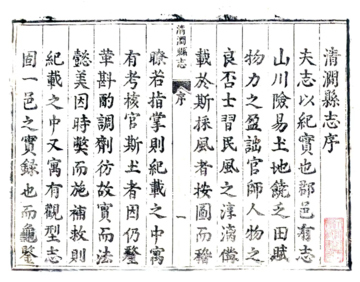 清澗縣志序
夫志以紀實也郡邑有志
山川險易土地饒乏田賦
物力之盈詘官師人物之
良否士習民風之淳漓僃
載於斯採風者按圖而稽
清澗縣志
序
一
瞭若指掌則紀載之中寓
有考核官斯土者因仍釐
革斟酌調劑彷故實而法
懿美因時獘而施補救則
紀載之中又寓有觀型志
固一邑之實錄也而龜鑒